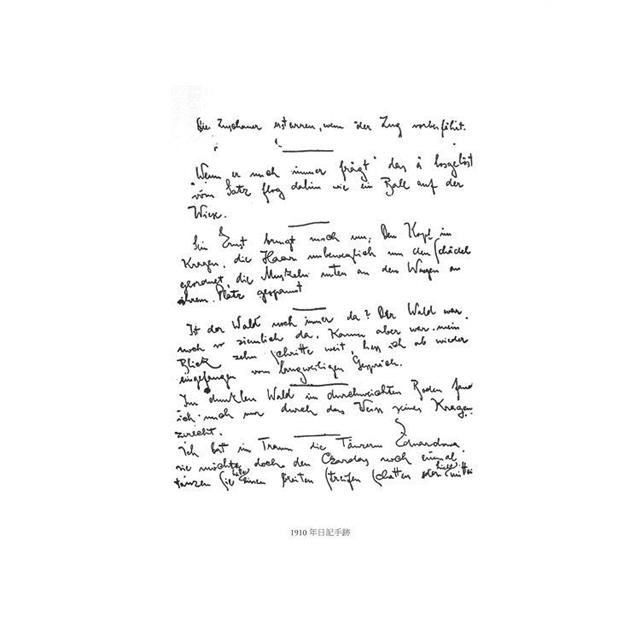 Die Zuschauer erstarren, wenn der Zug vorbeifährt.
"Wenn er mich immer frägt" das ä losgelöst
vom Satz flog dahin wie ein Ball auf der
Wiese.
Sein Ernst bringt mich um. Den Kopf im
Kragen, die Haare unbeweglich um den Schädel
geordnet, die Muskeln unten an den Wangen an
ihrem Platz gespannt
Ist der Wald noch immer da? Der Wald war
noch so ziemlich da. Kaum aber war mein
Blick zehn Schritte weit, liess ich ab wieder
eingefangen vom langweiligen Gespräch.
Im dunklen Wald im durchweichten Boden fand
ich mich nur durch das Weiss seines Kragens
zurecht.
Ich bat im Traum die Tänzerin Eduardowa
sie möchte doch den Czardas noch einmal
tanzen. Sie hatte einen breiten Streifen Schatten oder
1910 年日記手跡